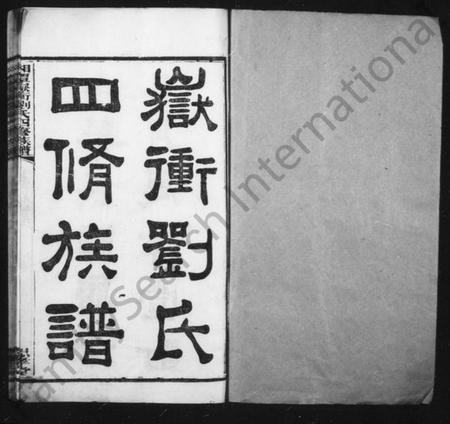 嶽衝劉氏
四脩族譜
劉氏四修族譜
FamilySearch International